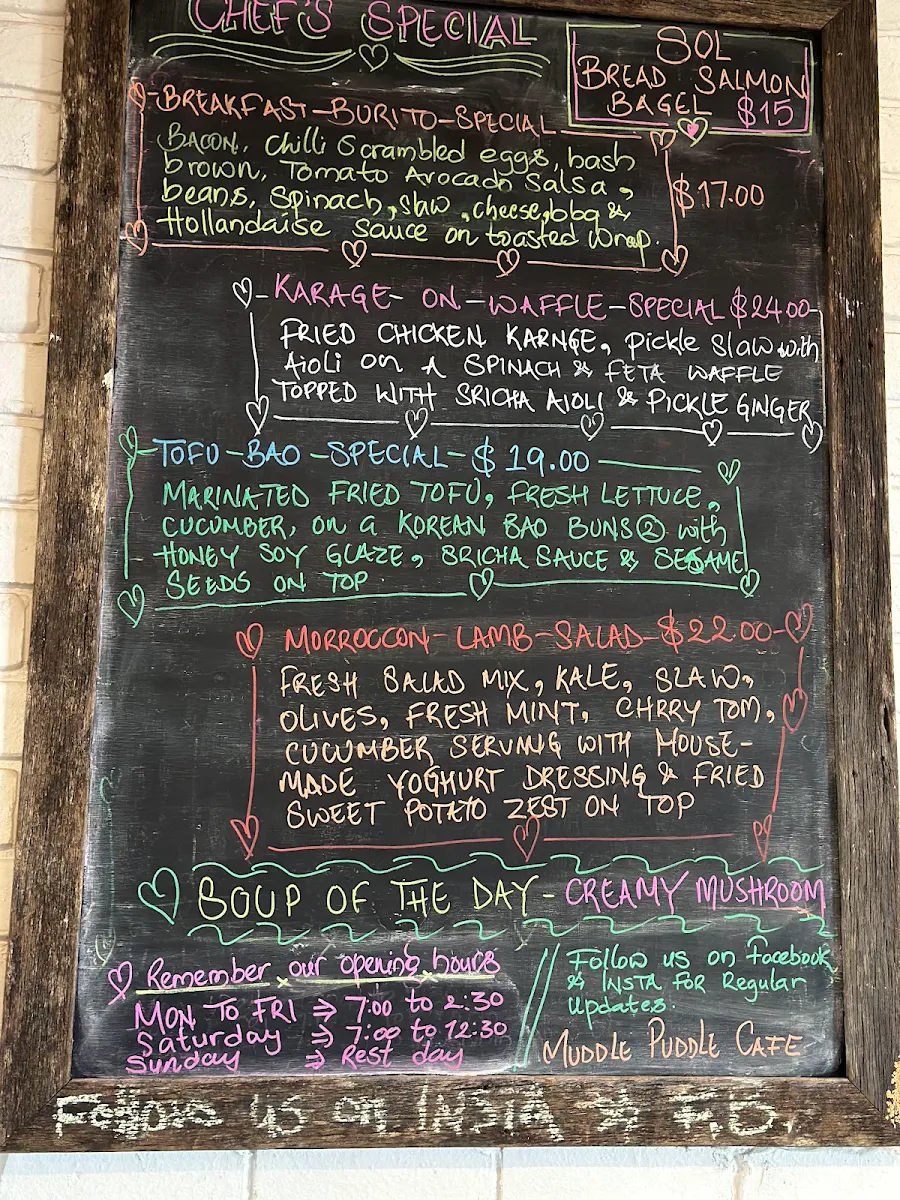 CHEF'S SPECIAL
SOL
BREAD SALMON
BAGEL $15
BREAKFAST-BURITO-SPECIAL
BACON, Chilli Scrambled eggs, hash
brown, Tomato Avocado Salsa,
beans, Spinach, slaw, cheese, bbq &
Hollandaise sauce on toasted wrap.
$17.00
KARAGE- ON-WAFFLE-SPECIAL $24.00-
FRIED CHICKEN KARNGE, pickle Slaw with
Aioli on A SPINACH & FETA WAFFLE
TOPPED WITH SRICHA AIOLI & PICKLE GINGER
TOFU-BAO-SPECIAL-$19.00
MARINATED FRIED TOFU, FRESH LETTUCE,
CUCUMBER, on a KOREAN BAO BUNS② with
HONEY SOY GLAZE, SRICHA SAUCE & SESAME
SEEDS ON TOP
MORROCCON-LAMB-SALAD-$22.00-
FRESH SALAD MIX, KALE, SLAW,
OLIVES, FRESH MINT, CHRRY TOM,
CUCUMBER SERVING WITH HOUSE-
MADE YOGHURT DRESSING & FRIED
SWEET POTATO ZEST ON TOP
SOUP OF THE DAY-CREAMY MUSHROOM
Remember our opening hours
MON TO FRI ⇒ 7:00 to 2:30
Saturday ⇒ 7:00 to 12:30
Sunday ⇒ Rest day
Follow us on Facebook
& INSTA FOR Regular
Updates.
MUDDLE PUDDLE CAFE
Follows us on INSTA & F.B.